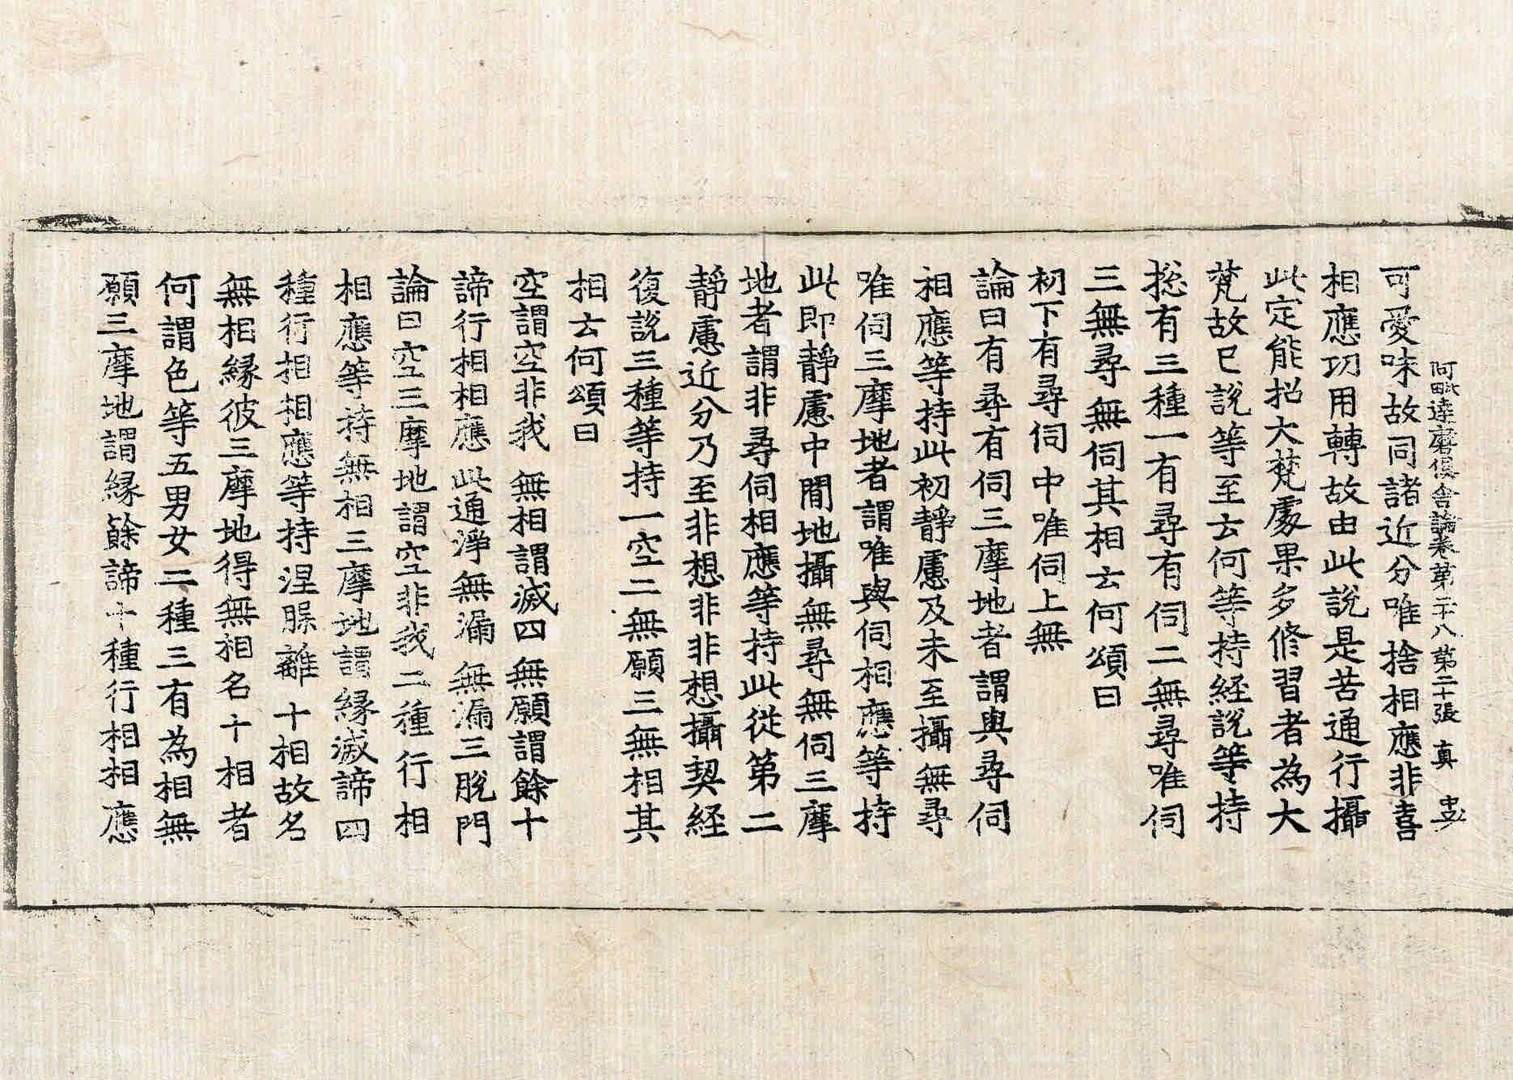 阿毗達磨俱舍論卷第二十八 第二十張 真
可愛味故同諸近分唯捨相應非喜
相應功用轉故由此說是苦通行攝
此定能招大梵處果多修習者為大
梵故已說等至云何等持經說等持
捴有三種一有尋有伺二無尋唯伺
三無尋無伺其相云何頌曰
初下有尋伺中唯伺上無
論曰有尋有伺三摩地者謂與尋伺
相應等持此初靜慮及未至攝無尋
唯伺三摩地者謂唯與伺相應等持
此即靜慮中間地攝無尋無伺三摩
地者謂非尋伺相應等持此從第二
靜慮近分乃至非想非非想攝契經
復說三種等持一空二無願三無相其
相云何頌曰
空謂空非我 無相謂滅四 無願謂餘十
諦行相相應 此通淨無漏 無漏三脫門
論曰空三摩地謂空非我二種行相
相應等持無相三摩地謂緣滅諦四
種行相相應等持涅槃離十相故名
無相緣彼三摩地得無相名十相者
何謂色等五男女二種三有為相無
願三摩地謂緣餘諦十種行相相應